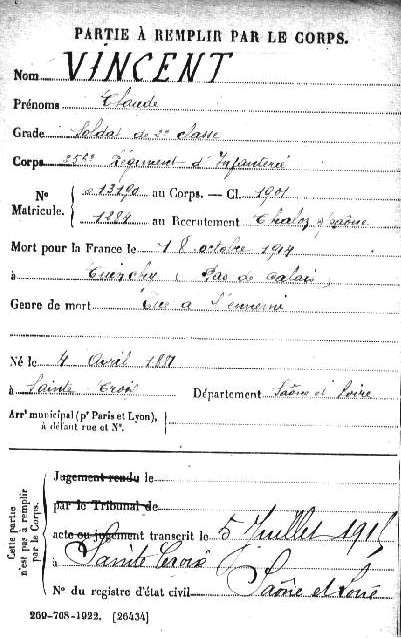 PARTIE À REMPLIR PAR LE CORPS.
Nom VINCENT
Prénoms Claude
Grade Soldat de 2e classe
Corps Régiment d'Infanterie
Nº Matricule. 013190 au Corps. — Cl. 1901
1284 au Recrutement Chalon s/Saône
Mort pour la France le 18 octobre 1914
à Cuinchy (Pas de Calais)
Genre de mort Tué à l'ennemi
Né le 4 Avril 1881
à Sainte Croix Département Saône et Loire
Arrt municipal (pr Paris et Lyon),
à défaut rue et Nº.
Cette partie
n'est pas à remplir
par le Corps.
Jugement rendu le
par le Tribunal de
acte ou jugement transcrit le 5 Juillet 1915
à Sainte Croix
Saône et Loire
Nº du registre d'état civil
269-708-1922. [26434]